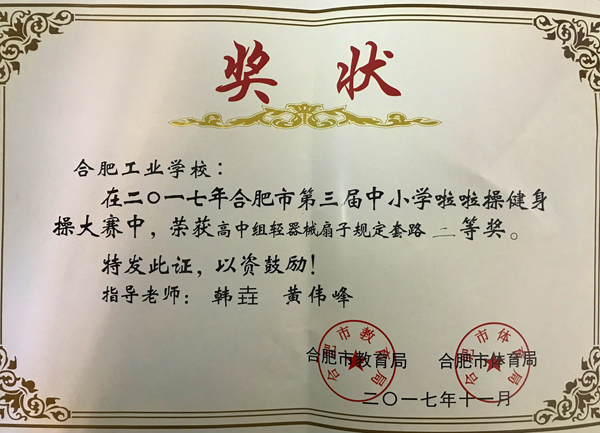 奖状
合肥工业学校：
在二〇一七年合肥市第三届中小学啦啦操健身
操大赛中，荣获高中组轻器械扇子规定套路 二等奖。
特发此证，以资鼓励！
指导老师：韩垚 黄伟峰
合肥市教育局 合肥市体育局
合肥市教育局 合肥市体育局
二〇一七年十一月